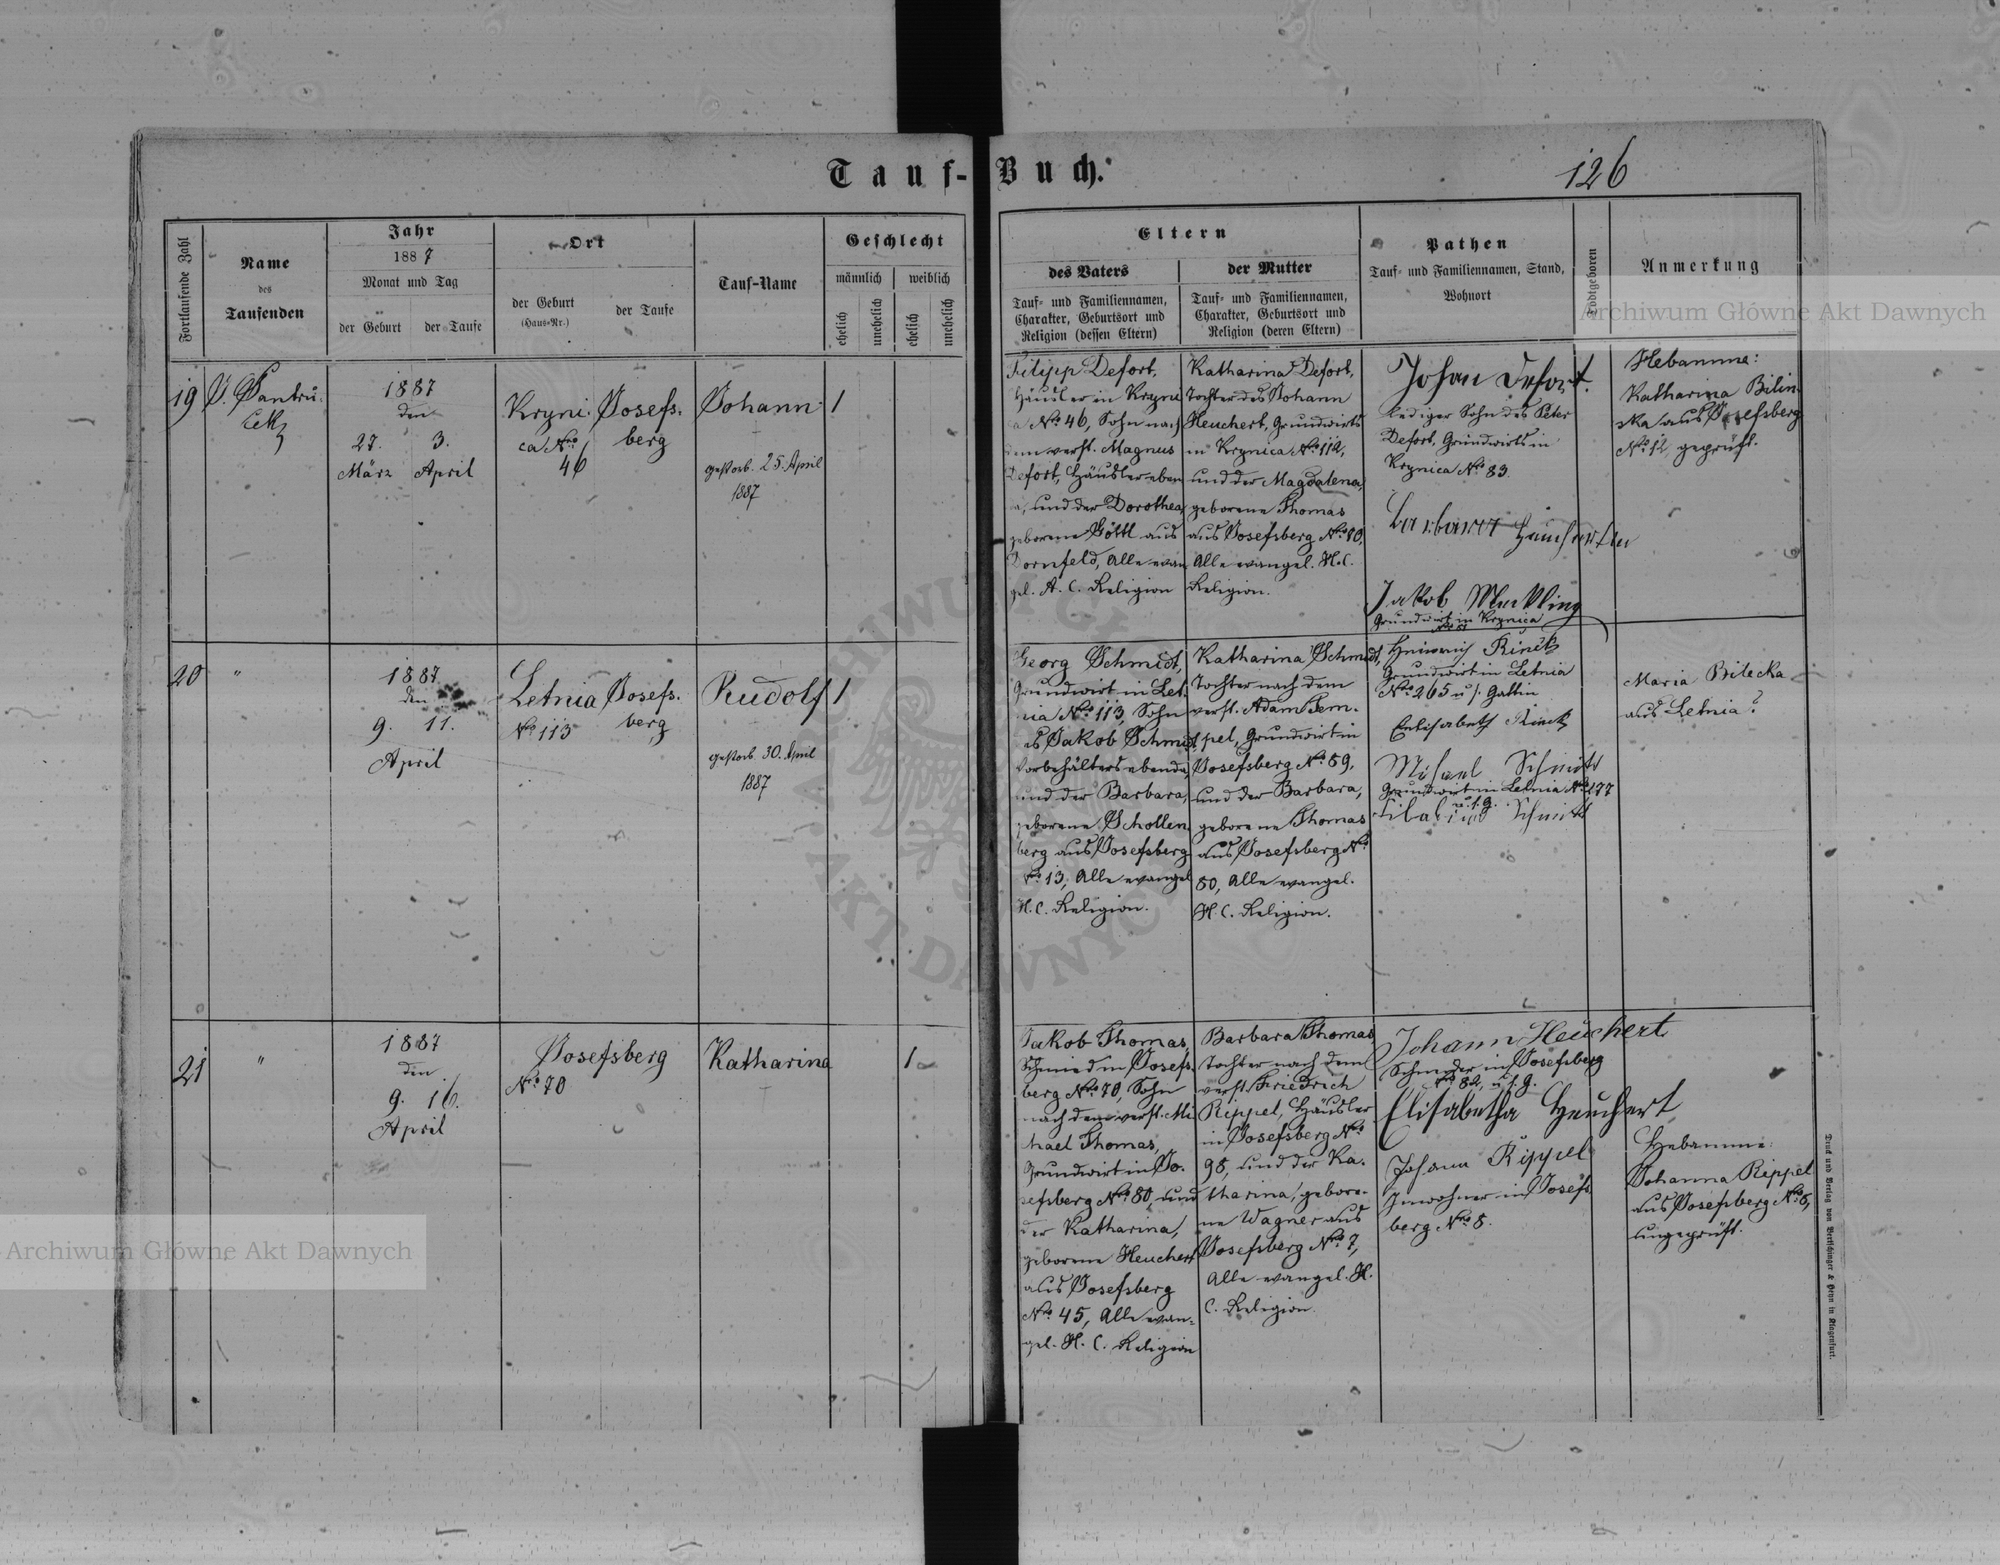 Tauf-Buch.
126
Fortlaufende Zahl
Name
des
Taufenden
Jahr
1887
Monat und Tag
der Geburt
der Taufe
Ort
der Geburt
(Haus-Nr.)
der Taufe
Tauf-Name
Geschlecht
männlich
weiblich
ehelich
unehelich
ehelich
unehelich
Eltern
des Vaters
Tauf- und Familiennamen,
Charakter, Geburtsort und
Religion (dessen Eltern)
der Mutter
Tauf- und Familiennamen,
Charakter, Geburtsort und
Religion (deren Eltern)
Pathen
Tauf- und Familiennamen, Stand,
Wohnort
Todtgeboren
Anmerkung
Archiwum Główne Akt Dawnych
19
1887
den
27. 3.
März April
Kryni
ca Nro
46
Josefs-
berg
Johann
gestorb. 25. April
1887
1
Filipp Defort,
Häusler in Kryni
No 46, Sohn nach
dem verst. Magnus
Defort, Häusler eben
und der Dorothea,
geborene Göttl aus
Dornfeld, Alle evan
gel. A. C. Religion
Katharina Defort,
Tochter des Johann
Heuchert, Grundwirts
in Krynica No 112,
und der Magdalena,
geborene Thomas
aus Josefsberg No 80,
Alle evangel. H.C.
Religion.
Johan Defort.
lediger Sohn des Peter
Defort, Grundwirts in
Krynica No 83.
Barbara
Jakob
Grundwirt in Krynica
Hebamme:
Katharina Bilin-
ska aus Josefsberg
No 12, geprüft.
20
"
1887
den
9. 11.
April
Letnia
No 113
Josefs-
berg
Rudolf
gestorb. 30. April
1887
1
Georg Schmidt,
Grundwirt in Let-
nia No 113, Sohn
des Jakob Schmidt,
Vorbehälters ebenda
und der Barbara,
geborene Schollen
berg aus Josefsberg
No 13, Alle evangel
H. C. Religion.
Katharina Schmidt,
Tochter nach dem
verst. Adam Tem-
pel, Grundwirt in
Josefsberg No 59,
und der Barbara,
geborene Thomas
aus Josefsberg No
80, Alle evangel.
H. C. Religion.
Heinrich Rinck
Grundwirt in Letnia
No 265 u s. Gattin
Elisabeth Rinck
Michael Schmidt
Grundwirt in Letnia No 177
u. s. G.
Schmidt
Maria Bilecka
aus Letnia?
21
"
1887
den
9. 16.
April
Josefsberg
No 70
Katharina
1
Jakob Thomas,
Schmied in Josefs-
berg No 70, Sohn
nach dem verst. Mi
chael Thomas,
Grundwirt in Jo-
sefsberg No 80, und
der Katharina,
geborene Heuchert
aus Josefsberg
No 45, Alle evan-
gel. H. C. Religion
Barbara Thomas
Tochter nach dem
verst. Friedrich
Rippel, Häusler
in Josefsberg No
98, und der Ka-
tharina, gebore-
ne Wagner aus
Josefsberg No 7,
Alle evangel. H.
C. Religion.
Johann Heuchert
Schneider in Josefsberg
No 82, u. s. G.
Elisabetha Heuchert
Johann Rippel
Inwohner in Josefs
berg No 8.
Hebamme:
Johanna Rippel
aus Josefsberg No 8,
ungeprüft.
Druck und Verlag von Bertschinger & Heyn in Klagenfurt.
Archiwum Główne Akt Dawnych
ARCHIWUM GŁÓWNE AKT DAWNYCH